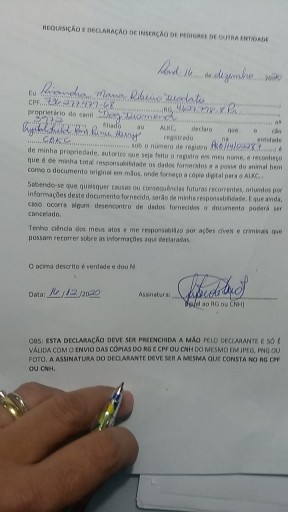 REQUISIÇÃO E DECLARAÇÃO DE INSERÇÃO DE PEDIGREE DE OUTRA ENTIDADE
14 de dezembro 2020
Eu Maria Ribeiro
CPF RG
proprietário do canil Dog Diamond nº
filiado ao ALKC, declaro que o cão
registrado na entidade
CBKC sob o número de registro é
de minha propriedade, autorizo que seja feito o registro em meu nome, e reconheço
que é de minha total responsabilidade os dados fornecidos e a posse do animal bem
como o documento original em mãos, onde forneço a cópia digital para o ALKC..
Sabendo-se que quaisquer causas ou consequências futuras recorrentes, oriundos por
informações deste documento fornecido, serão de minha responsabilidade. E que ainda,
caso ocorra algum desencontro de dados fornecidos o documento poderá ser
cancelado.
Tenho ciência dos meus atos e me responsabilizo por ações cíveis e criminais que
possam recorrer sobre as informações aqui declaradas.
O acima descrito é verdade e dou fé
Data: 14/12/2020 Assinatura:
(Igual ao RG ou CNH)
OBS: ESTA DECLARAÇÃO DEVE SER PREENCHIDA A MÃO PELO DECLARANTE E SÓ É
VÁLIDA COM O ENVIO DAS CÓPIAS DO RG E CPF OU CNH DO MESMO EM JPEG, PNG OU
FOTO. A ASSINATURA DO DECLARANTE DEVE SER A MESMA QUE CONSTA NO RG CPF
OU CNH.